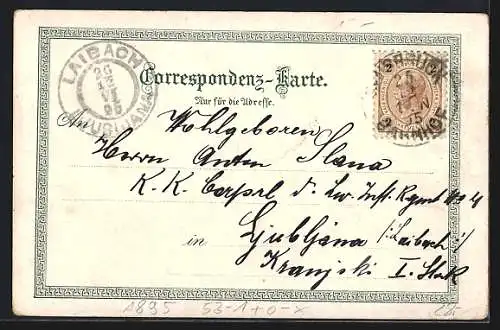 LAIBACH
LJUBLJANA
Correspondenz-Karte.
Nur für die Adresse.
An
Wohlgeboren
Herrn Anton Slana
K. K. d. Lw. Inft. Regmt No 4
in Ljubljana (:Laibach:)
Kranjski I. Stok
1895 53-1+0-x